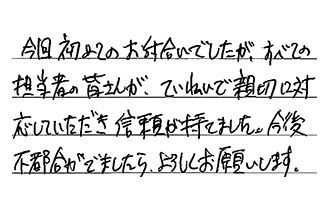 今回初めてのお付合いでしたが、すべての
担当者の皆さんが、ていねいで親切に対
応していただき信頼が持てました。今後
不都合がでましたら、よろしくお願いします。